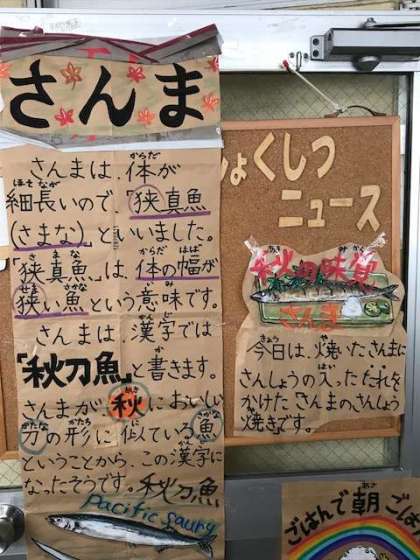 さんま
さんまは、体が
細長いので、「狭真魚
(さまな)」といいました。
「狭真魚」は、体の幅が
狭い魚という意味です。
さんまは、漢字では
「秋刀魚」と書きます。
さんまが、秋においしい
刀の形に似ている魚
ということから、この漢字に
なったそうです。秋刀魚
Pacific saury
ょくしつ
ニュース
秋の味覚
さんま
今日は、焼いたさんまに
さんしょうの入ったたれを
かけた さんまのさんしょう
焼きです。
ごはんで朝ごは